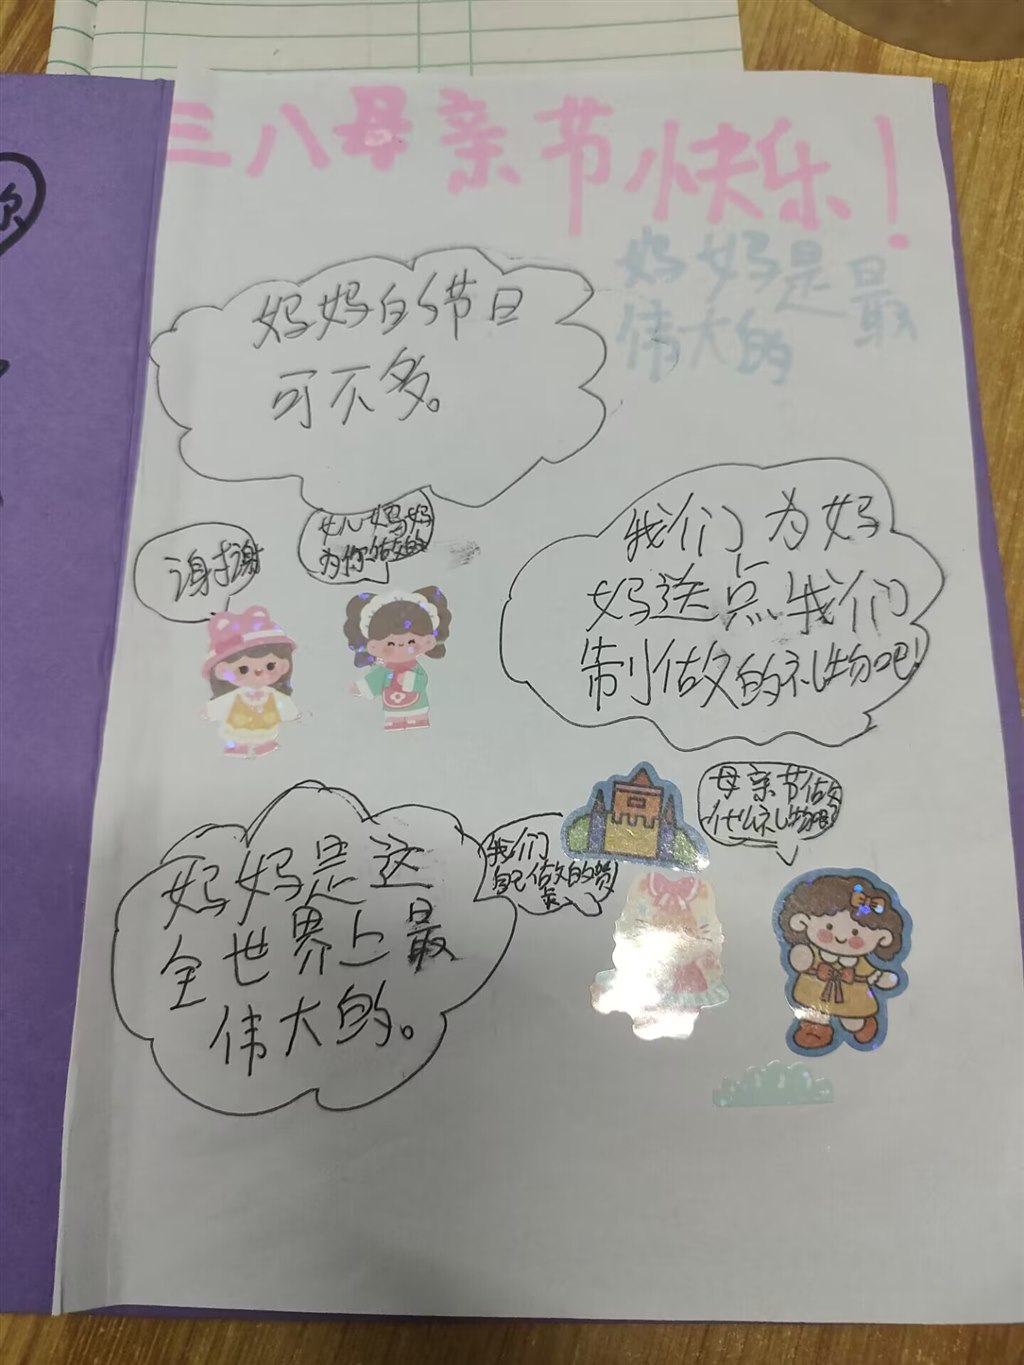 三八母亲节快乐！
妈妈是最
伟大的
妈妈的节日
可不多。
谢谢
妈妈
为你做的
我们为妈
妈送点我们
制做的礼物吧！
母亲节做
什么礼物呢？
我们
自己做的
妈妈是这
全世界上最
伟大的。